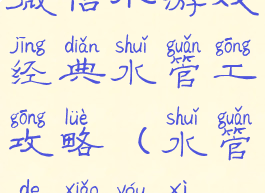 微信 游戏
jīng diǎn shuǐ guǎn gōng
经典水管工
gōng lüè shuǐ guǎn
攻略（水管
de xiǎo yóu xì